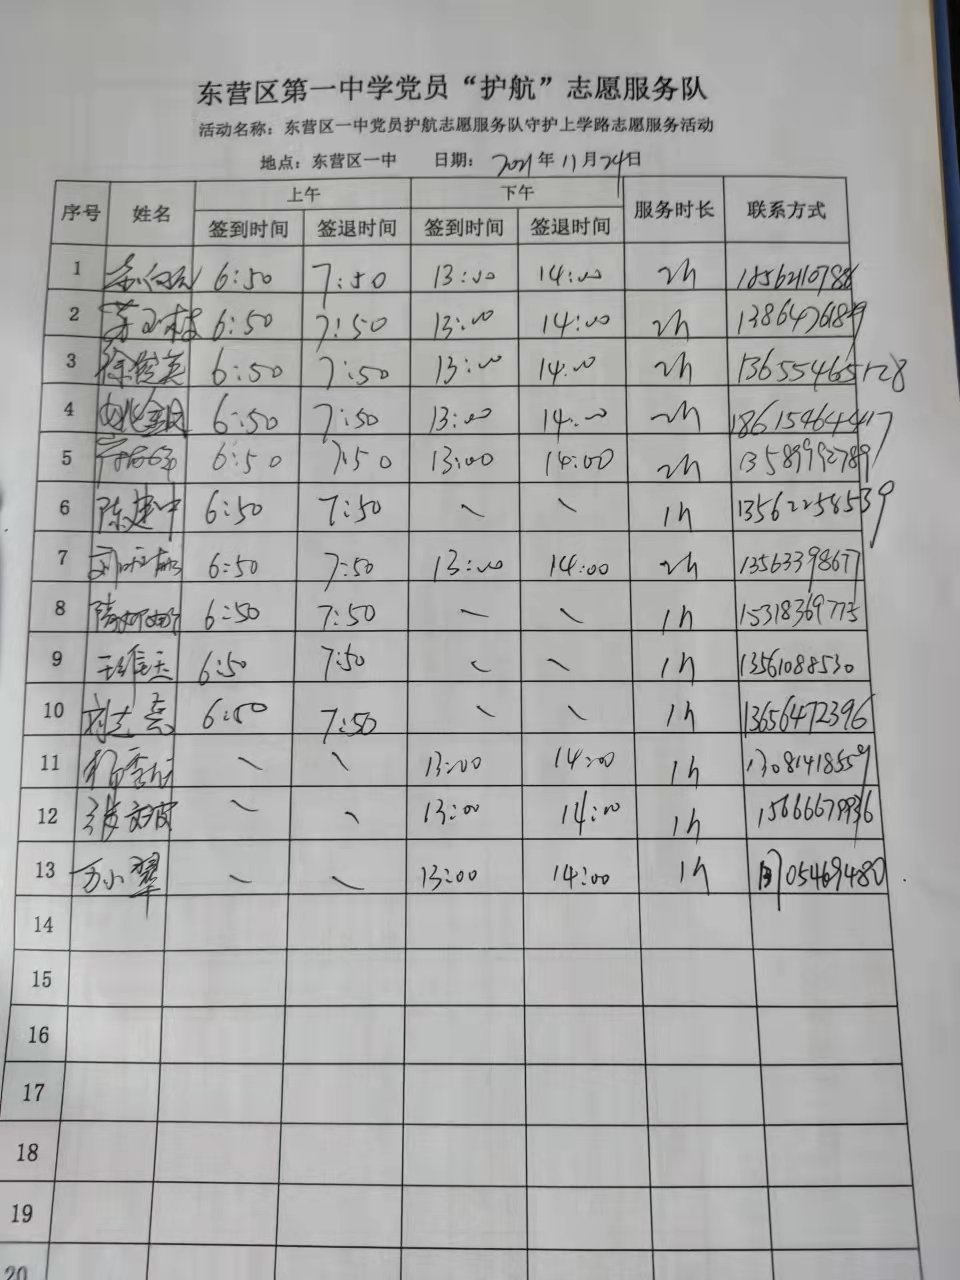 东营区第一中学党员“护航”志愿服务队
活动名称：东营区一中党员护航志愿服务队守护上学路志愿服务活动
地点：东营区一中 日期：2021年11月24日
序号 姓名 上午 下午 服务时长 联系方式
签到时间 签退时间 签到时间 签退时间
1 6:50 7:50 13:00 14:00 2h
2 6:50 7:50 13:00 14:00 2h
3 6:50 7:50 13:00 14:00 2h 13655465128
4 6:50 7:50 13:00 14:00 2h 18615464447
5 6:50 7:50 13:00 14:00 2h 13589992789
6 陈建中 6:50 7:50 \ \ 1h 13562258539
7 6:50 7:50 13:00 14:00 2h 13563398677
8 6:50 7:50 \ \ 1h 15318369775
9 王维玉 6:50 7:50 \ \ 1h 13561088530
10 刘志亮 6:50 7:50 \ \ 1h 13656472396
11 \ \ 13:00 14:00 1h 13081418559
12 \ \ 13:00 14:00 1h 15666679936
13 万小翠 \ \ 13:00 14:00 1h
14
15
16
17
18
19
20